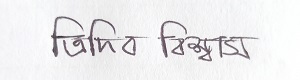 ত্রিদিব বিশ্বাস